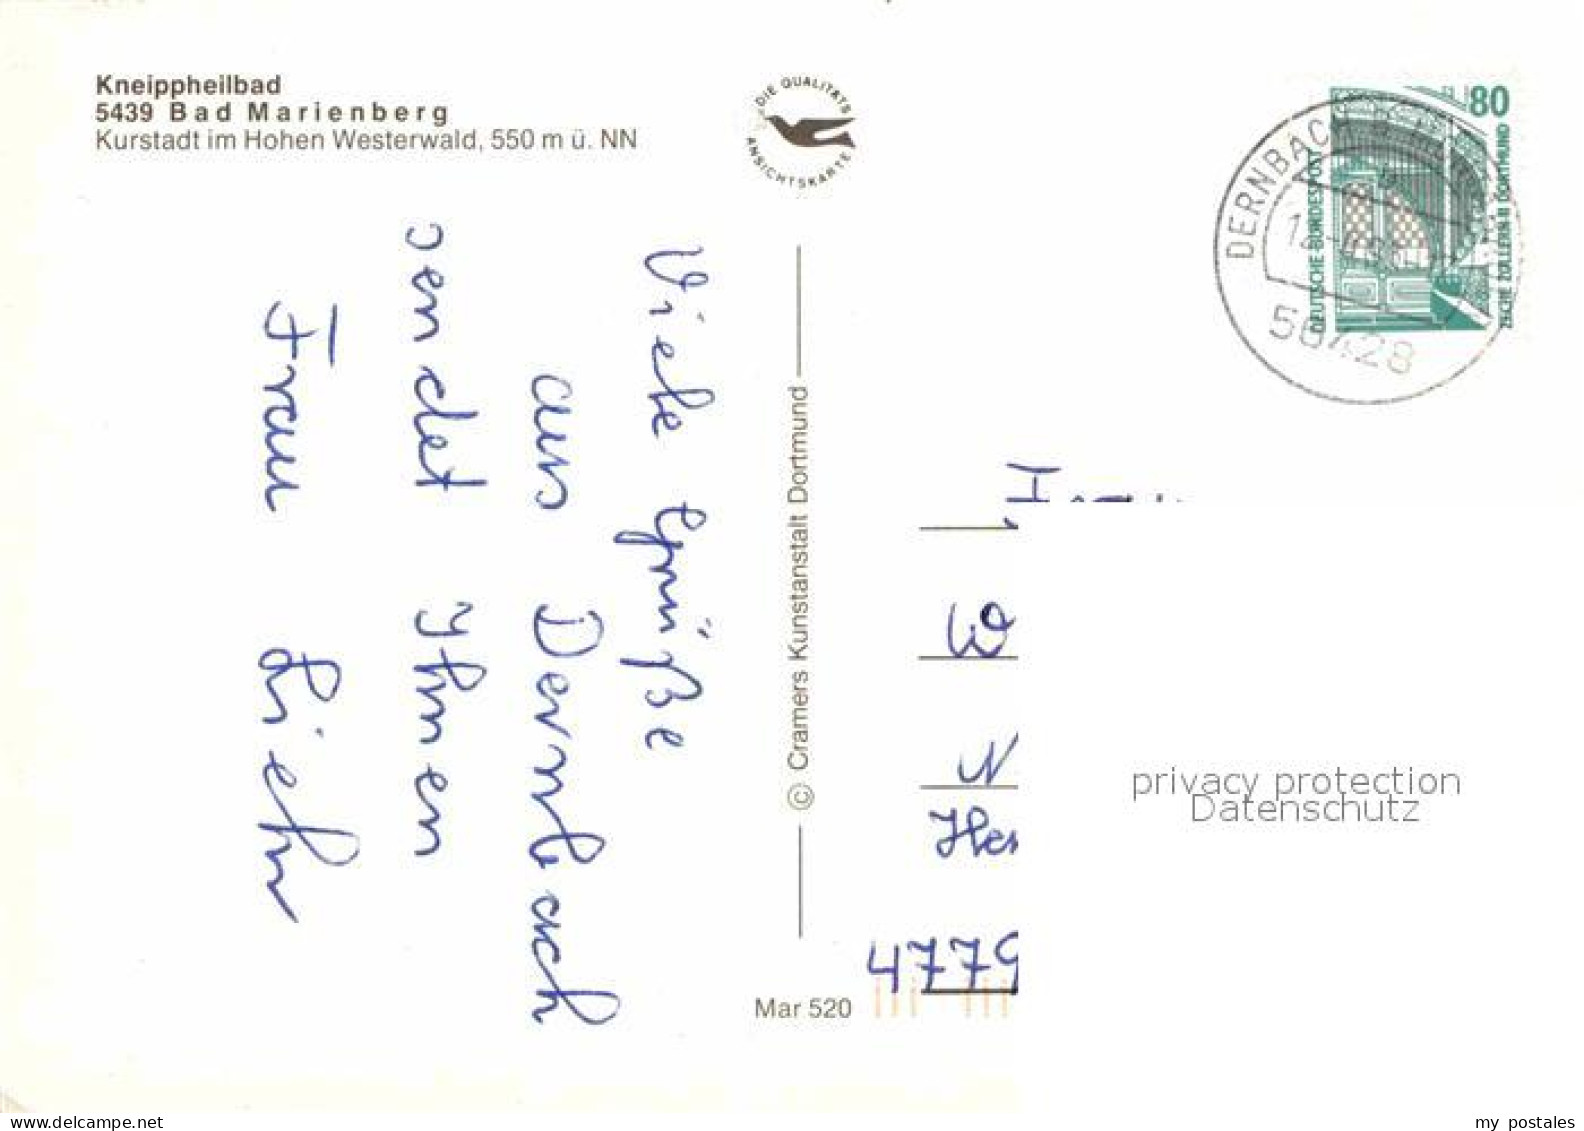 Kneippheilbad
5439 Bad Marienberg
Kurstadt im Hohen Westerwald, 550 m ü. NN
DIE QUALITÄTS
ANSICHTSKARTE
Viele Grüße
aus Dernbach
sendet Ihnen
Frau Liehr
© Cramers Kunstanstalt Dortmund
Mar 520
80
DEUTSCHE BUNDESPOST
ZECHE ZOLLERN II DORTMUND
DERNBACH
56428
W
N
4779
privacy protection
Datenschutz
www.delcampe.net
my postales